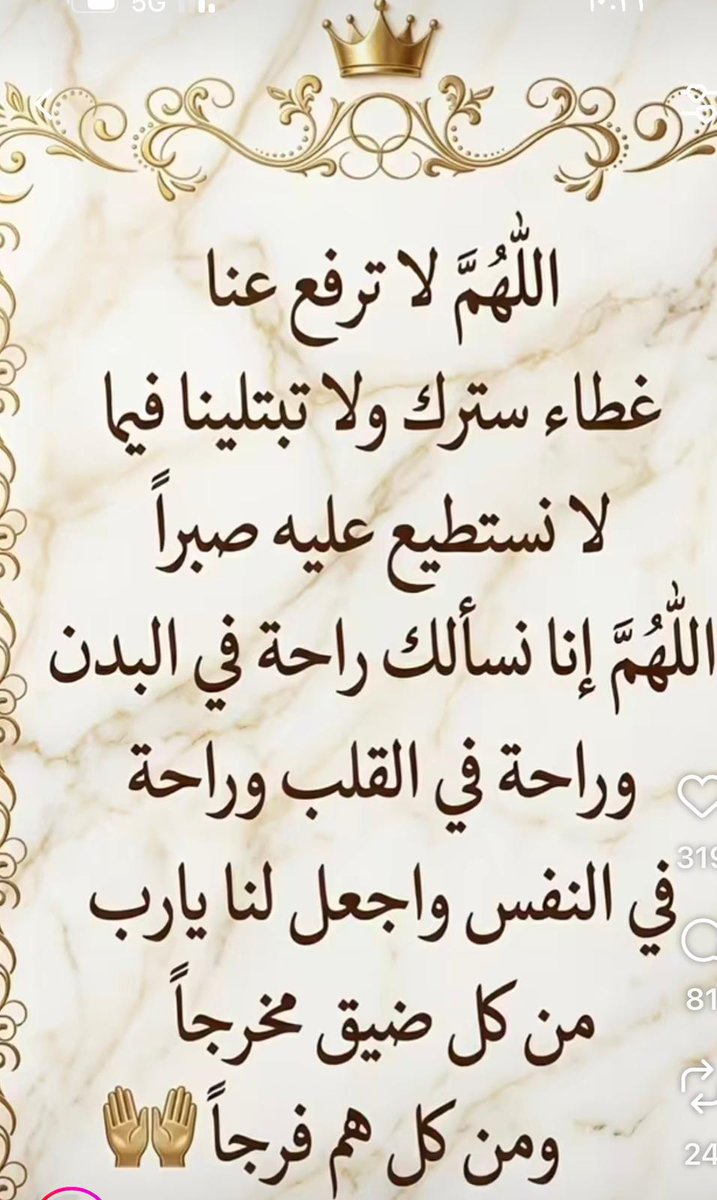 5G
١٠:٢١
اللّٰهُمَّ لا ترفع عنا
غطاء سترك ولا تبتلينا فيما
لا نستطيع عليه صبراً
اللّٰهُمَّ إنا نسألك راحة في البدن
وراحة في القلب وراحة
في النفس واجعل لنا يارب
من كل ضيق مخرجاً
ومن كل هم فرجاً 🙌
319
81
24